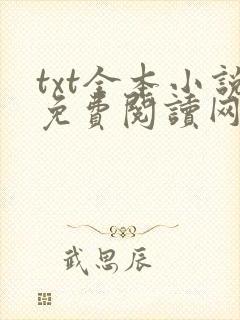 txt全本小说
免費閱讀网
武思辰